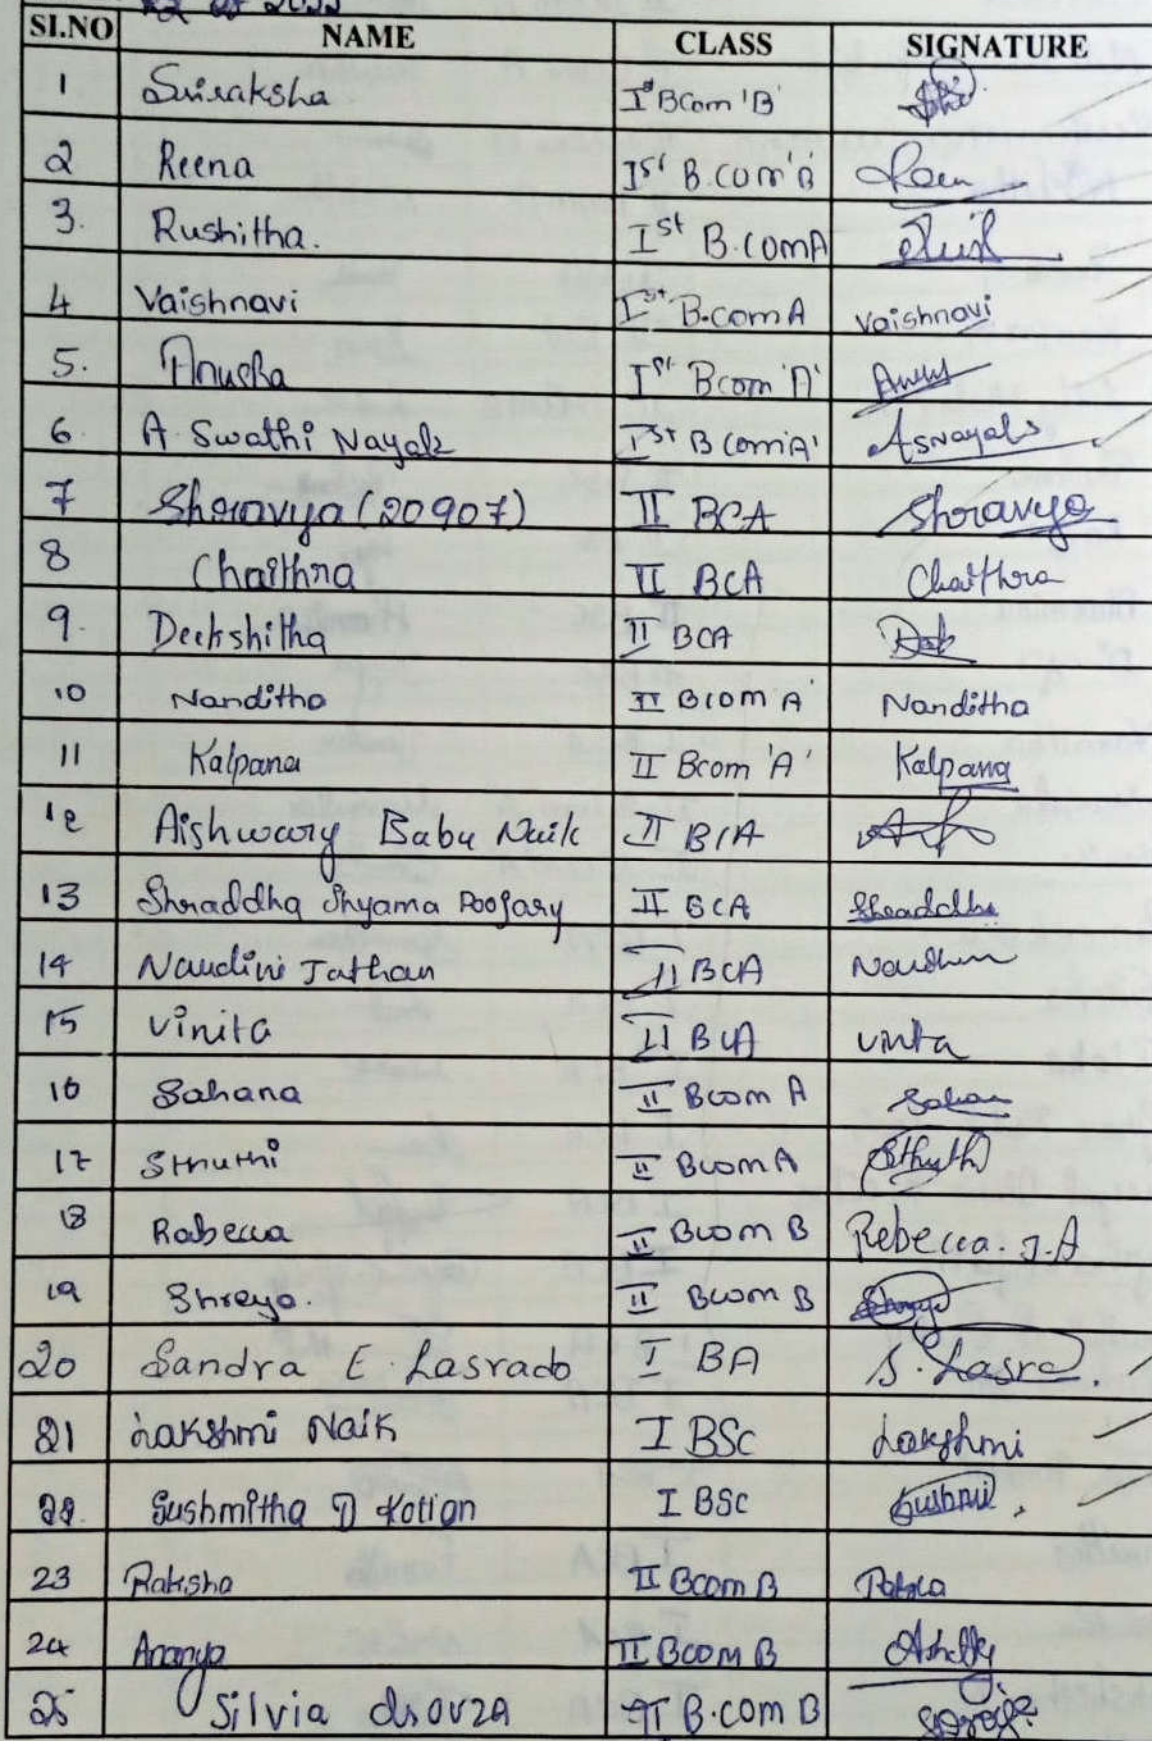 SI.NO NAME CLASS SIGNATURE
1 Suiraksha Ist BCom 'B'
2 Reena Ist B.com'B'
3. Rushitha. Ist B.comA
4 Vaishnavi Ist B.com A Vaishnavi
5. Anusha Ist Bcom 'A'
6. A Swathi Nayak Ist B com'A' ASNayak
7 Shravya (20907) II BCA Shravya
8 Chaithra II BCA Chaithra
9. Deekshitha II BCA
10 Nanditha II Bcom A' Nanditha
11 Kalpana II Bcom 'A' Kalpana
12 Aishwary Babu Naik II BCA
13 Shraddha Shyama Poojary II BCA Shraddha
14 Nandini Jathan II BCA
15 Vinita II BCA vinta
16 Sahana II Bcom A
17 Sthuthi II Bcom A Sthuthi
18 Rabecca II Bcom B Rebecca. J.A
19 Shreya. II Bcom B
20 Sandra E. Lasrado I BA S. Lasra.
21 Lakshmi Naik I BSc Lakshmi
22. Sushmitha D Kotian I BSC
23 Raksha II Bcom B
24 Ananya II Bcom B
25 Silvia dsouza II B.com B